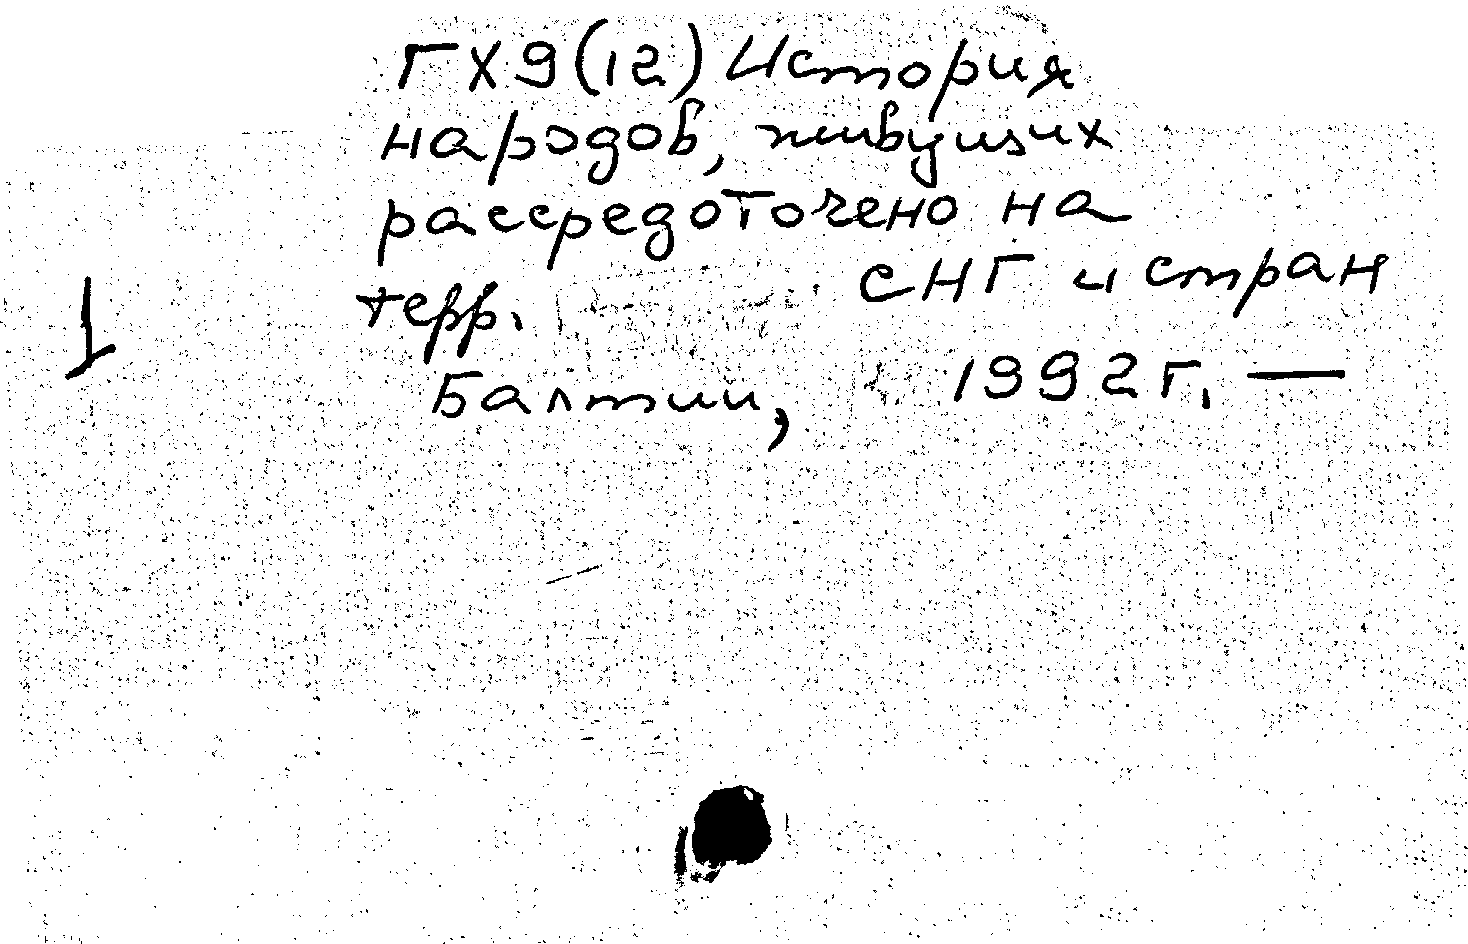 ГХ9(12) История
народов, живущих
рассредоточено на
терр. СНГ и стран
Балтии, 1992 г. —
1